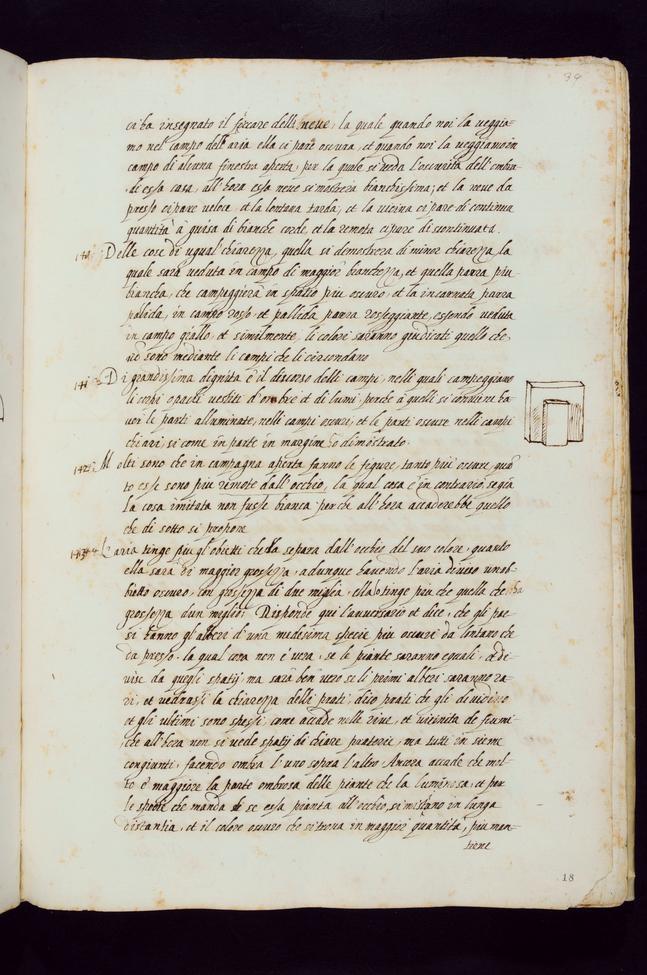 34
ci ha insegnato il fioccare della neue, la quale quando noi la ueggia-
mo nel campo dell'aria ella ci pare oscura, et quando noi la ueggiamo in
campo di alcuna finestra aperta, per la quale si ueda l'oscurità dell'ombra
di essa casa, all'hora essa neue si mostrerà bianchissima; et la neue da
presso ci pare veloce, et la lontana tarda, et la uicina ci pare di continua
quantità à guisa di bianche corde, et la remota ci pare discontinuata.
Delle cose di ugual chiarezza, quella si demostrerà di minor chiarezza, la
quale sarà ueduta in campo di maggior bianchezza, et quella parrà piu
bianca, che campeggierà in spatio piu oscuro, et la incarnata parrà
palida, in campo rosso, et pallida parrà rosseggiante, essendo ueduta
in campo giallo, et similmente li colori saranno giudicati quello che
nõ sono mediante li campi che li circondano
141 Di grandissima dignità è il discorso delli campi, nelli quali campeggiano
li corpi opachi uestiti d'ombre et di lumi perche à quelli si conuiene ha
uer le parti alluminate, nelli campi oscuri, et le parti oscure nelli campi
chiari si come in parte in margine è dimostrato.
142 Molti sono che in campagna aperta fanno le figure, tanto piu oscure quã
to esse sono piu remote dall'occhio, la qual cosa è in contrario se gia
la cosa imitata non fusse bianca perche all'hora accaderebbe quello
che di sotto si propone
L'aria tinge piu gl'obietti ch'ella separa dall'occhio del suo colore, quanto
ella sarà di maggior grossezza, adunque hauendo l'aria diuiso un ob-
bietto oscuro, con grossezza di due miglia, ella lo tinge piu che quella che ha
grossezza d'un miglio. Risponde qui l'auuersario et dice, che gli pae-
si hanno gl'alberi d'una medesima specie piu oscuri da lontano che
da presso. la qual cosa non è uera, se le piante saranno eguali, et di-
uise da eguali spatij ma sarà ben uero se li primi alberi saranno ra
ri, et uedrassi la chiarezza delli prati, dico prati che gli diuidino
et gli ultimi sono spessi, come accade nelle riue, et uicinità de fiumi
che all'hora non si uede spatij di chiare praterie, ma tutti in sieme
congiunti, facendo ombra l'uno sopra l'altro Ancora accade che mol
to è maggiore la parte ombrosa delle piante che la luminosa, et per
le specie che manda di se essa pianta all'occhio, si mistano in lunga
distantia, et il colore oscuro che si troua in maggior quantità, piu man-
tiene
18